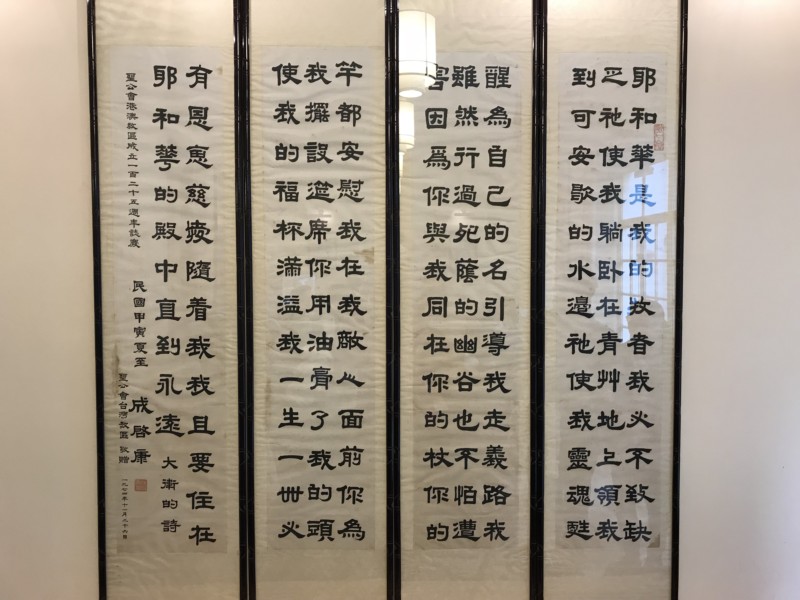 耶和華是我的牧者我必不致缺
乏祂使我躺臥在青艸地上領我
到可安歇的水邊祂使我靈魂甦
醒為自己的名引導我走義路我
雖然行過死蔭的幽谷也不怕遭
害因爲你與我同在你的杖你的
竿都安慰我在我敵人面前你為
我擺設筵席你用油膏了我的頭
使我的福杯滿溢我一生一世必
有恩惠慈愛隨着我我且要住在
耶和華的殿中直到永遠 大衛的詩
聖公會港澳教區成立一百二十五週年誌慶
民國甲寅夏至 成啓
聖公會台灣教區 敬贈
一九七四年十一月二十六日